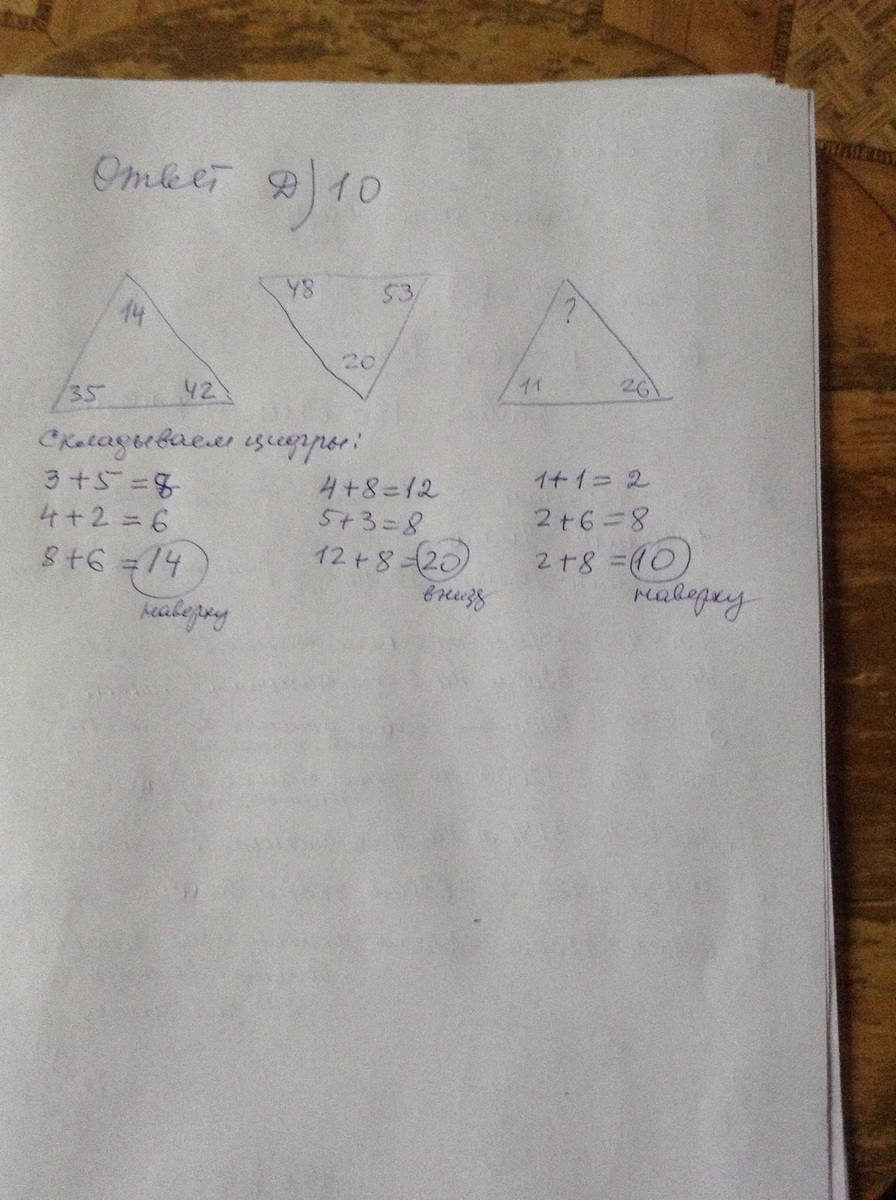 Ответ Д) 10
14 48 53 ?
35 42 20 11 26
Складываем цифры:
3+5=8 4+8=12 1+1=2
4+2=6 5+3=8 2+6=8
8+6=14 12+8=20 2+8=10
наверху внизу наверху